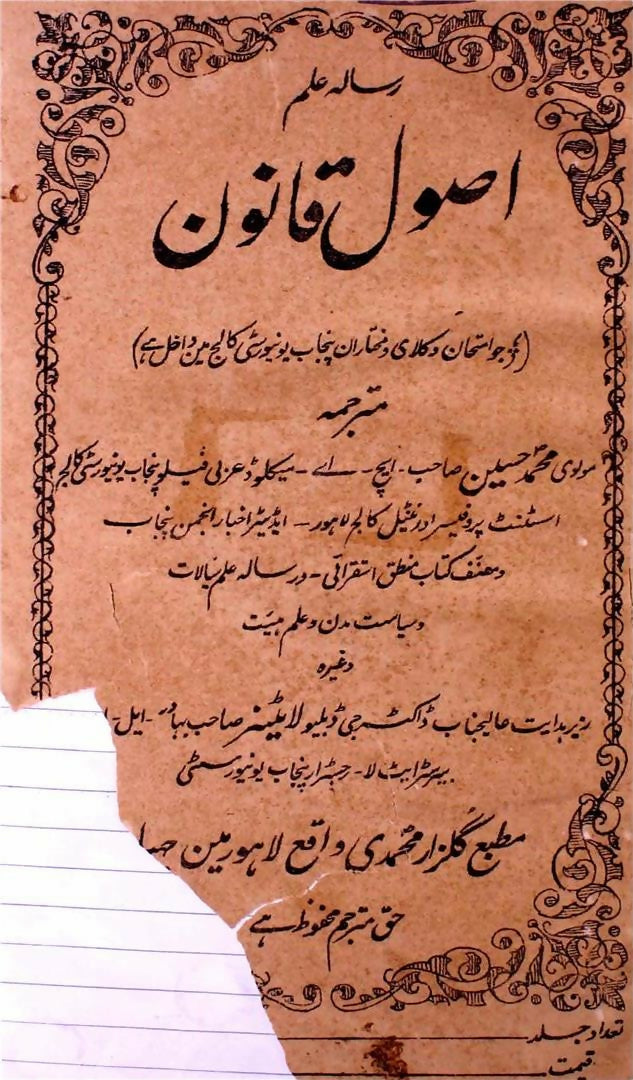 رسالہ علم
اصول قانون
(جو امتحان وکلای و مختاران پنجاب یونیورسٹی کالج مین داخل ہے)
مترجمہ
مولوی محمد حسین صاحب - ایچ - اے - میکلوڈ عربی فیلو پنجاب یونیورسٹی کالج
اسسٹنٹ پروفیسر اورینٹیل کالج لاہور - ایڈیٹر اخبار انجمن پنجاب
و مصنف کتاب منطق استقرائی - و رسالہ علم
و سیاست مدن و علم ہیئت
وغیرہ
زیر ہدایت عالیجناب ڈاکٹر جی ڈبلیو لایٹنر صاحب بہادر - ایل -
بیرسٹر ایٹ لا - رجسٹرار پنجاب یونیورسٹی
مطبع گلزار محمدی واقع لاہور مین
حق مترجم محفوظ ہے
تعداد جلد
قیمت